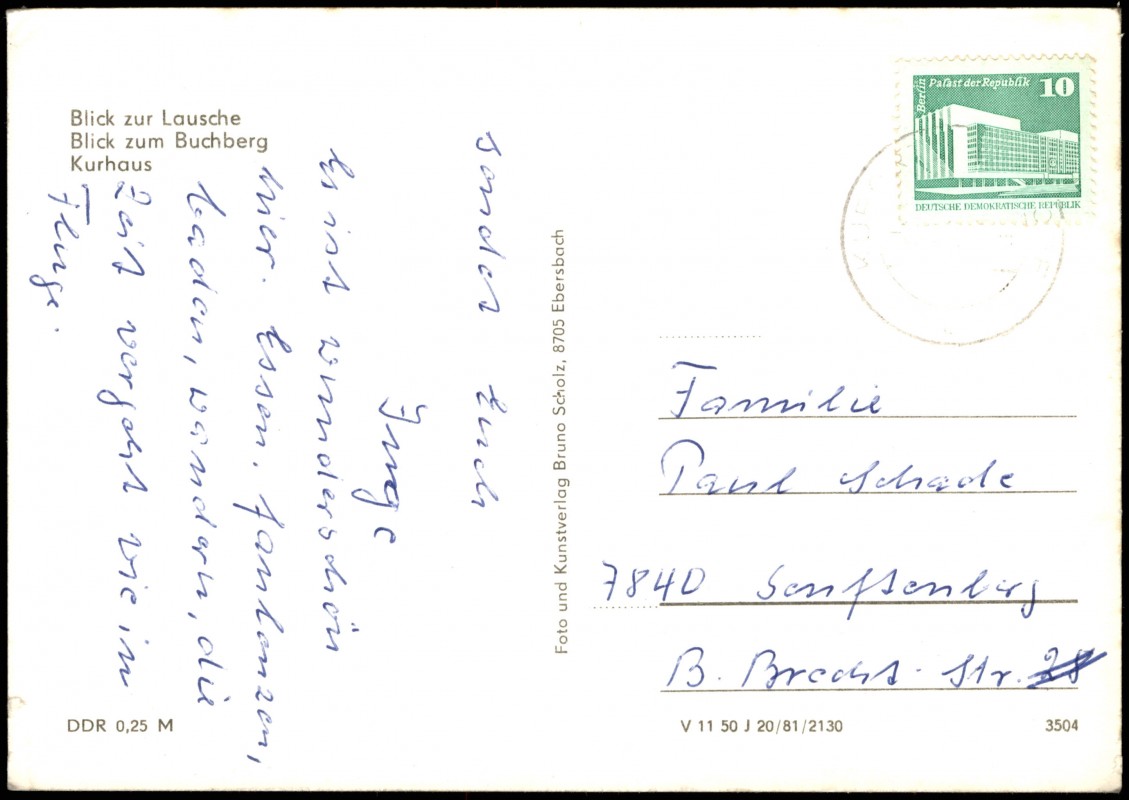 Blick zur Lausche
Blick zum Buchberg
Kurhaus
sendet Euch
Inge
Es ist wunderschön
hier. Essen, faulenzen,
baden, wandern, die
Zeit vergeht wie im
Fluge.
Foto und Kunstverlag Bruno Scholz, 8705 Ebersbach
Berlin
Palast der Republik
10
DEUTSCHE DEMOKRATISCHE REPUBLIK
Familie
Paul Schade
7840 Senftenberg
B. Brecht-Str.
DDR 0,25 M
V 11 50 J 20/81/2130
3504